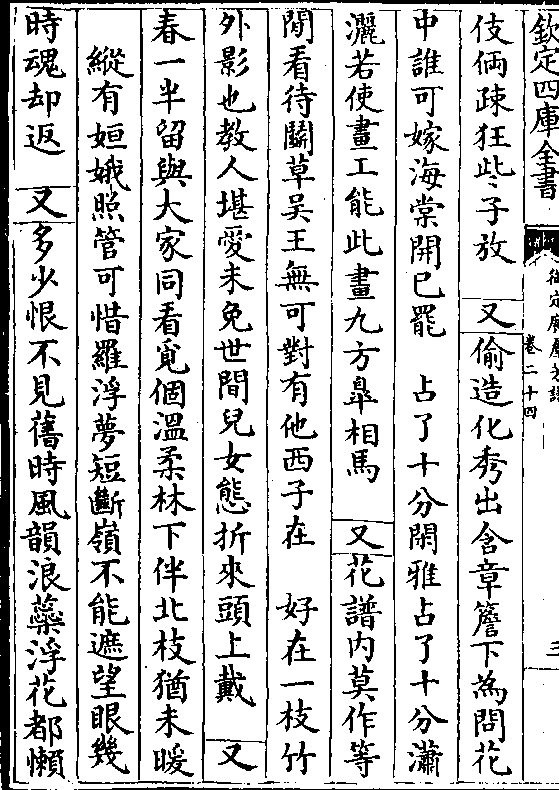 欽定四庫全書
卷二十四
伎倆疎狂些子放　又偷造化秀出含章簷下為問花
中誰可嫁海棠開已罷　占了十分閑雅占了十分瀟
灑若使畫工能此畫九方臯相馬　又花譜内莫作等
閒看待鬭草吴王無可對有他西子在　好在一枝竹
外影也教人堪愛未免世間兒女態折來頭上戴　又
春一半留與大家同看覓個溫柔林下伴北枝猶未暖
縱有姮娥照管可惜羅浮夢短斷嶺不能遮望眼幾
時魂却返　又多少恨不見舊時風韻浪蘂浮花都懶